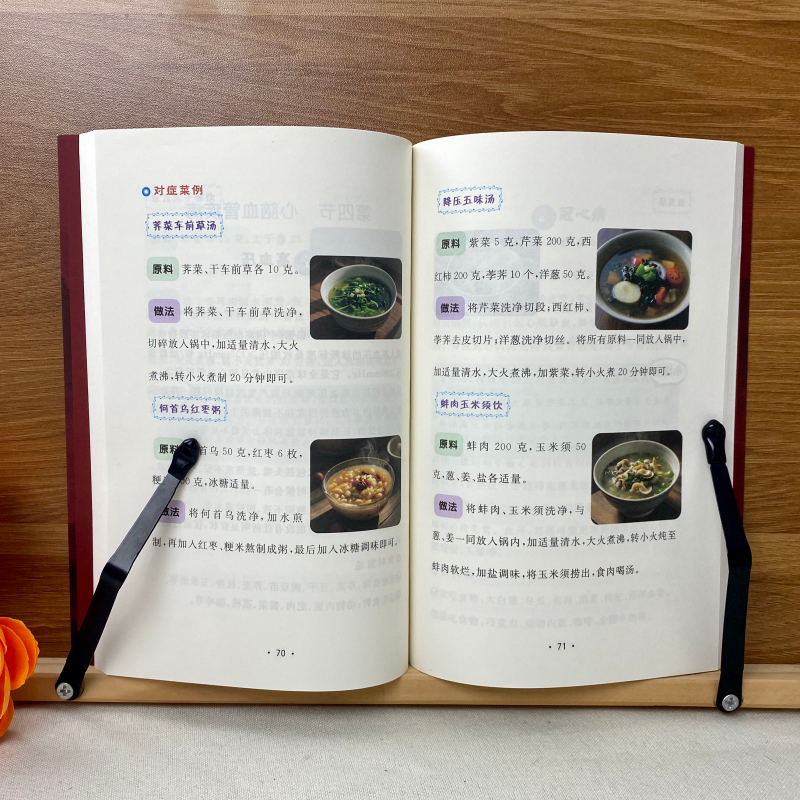 对症菜例
荠菜车前草汤
原料 荠菜、干车前草各 10 克。
做法 将荠菜、干车前草洗净,
切碎放入锅中,加适量清水,大火
煮沸,转小火煮制 20 分钟即可。
何首乌红枣粥
原料 首乌 50 克,红枣 6 枚,
粳 克,冰糖适量。
做法 将何首乌洗净,加水煎
制,再加入红枣、粳米熬制成粥,最后加入冰糖调味即可。
• 70 •
降压五味汤
原料 紫菜 5 克,芹菜 200 克,西
红柿 200 克,荸荠 10 个,洋葱 50 克。
做法 将芹菜洗净切段;西红柿、
荸荠去皮切片;洋葱洗净切丝。将所有原料一同放入锅中,
加适量清水,大火煮沸,加紫菜,转小火煮 20 分钟即可。
蚌肉玉米须饮
原料 蚌肉 200 克,玉米须 50
克,葱、姜、盐各适量。
做法 将蚌肉、玉米须洗净,与
葱、姜一同放入锅内,加适量清水,大火煮沸,转小火炖至
蚌肉软烂,加盐调味,将玉米须捞出,食肉喝汤。
• 71 •